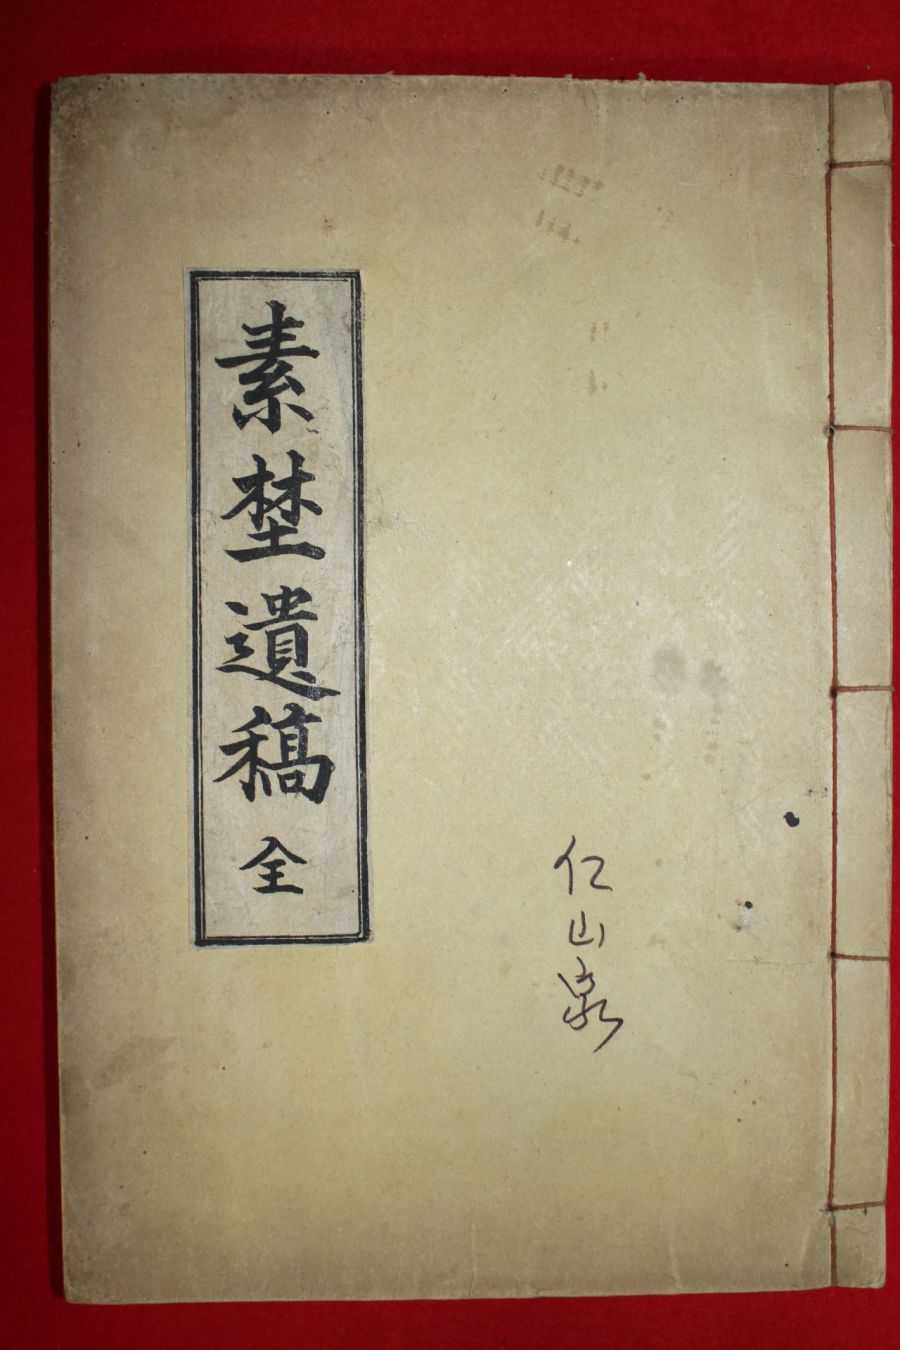 素埜遺稿 全
仁山泉